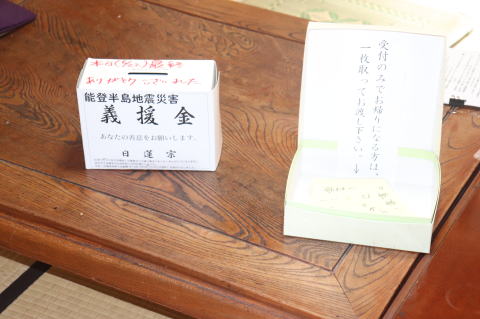 ありがとうございました
能登半島地震災害
義援金
あなたの善意をお願いします。
日蓮宗
受付のみでお帰りになる方は、
一枚取ってお渡し下さい。↓